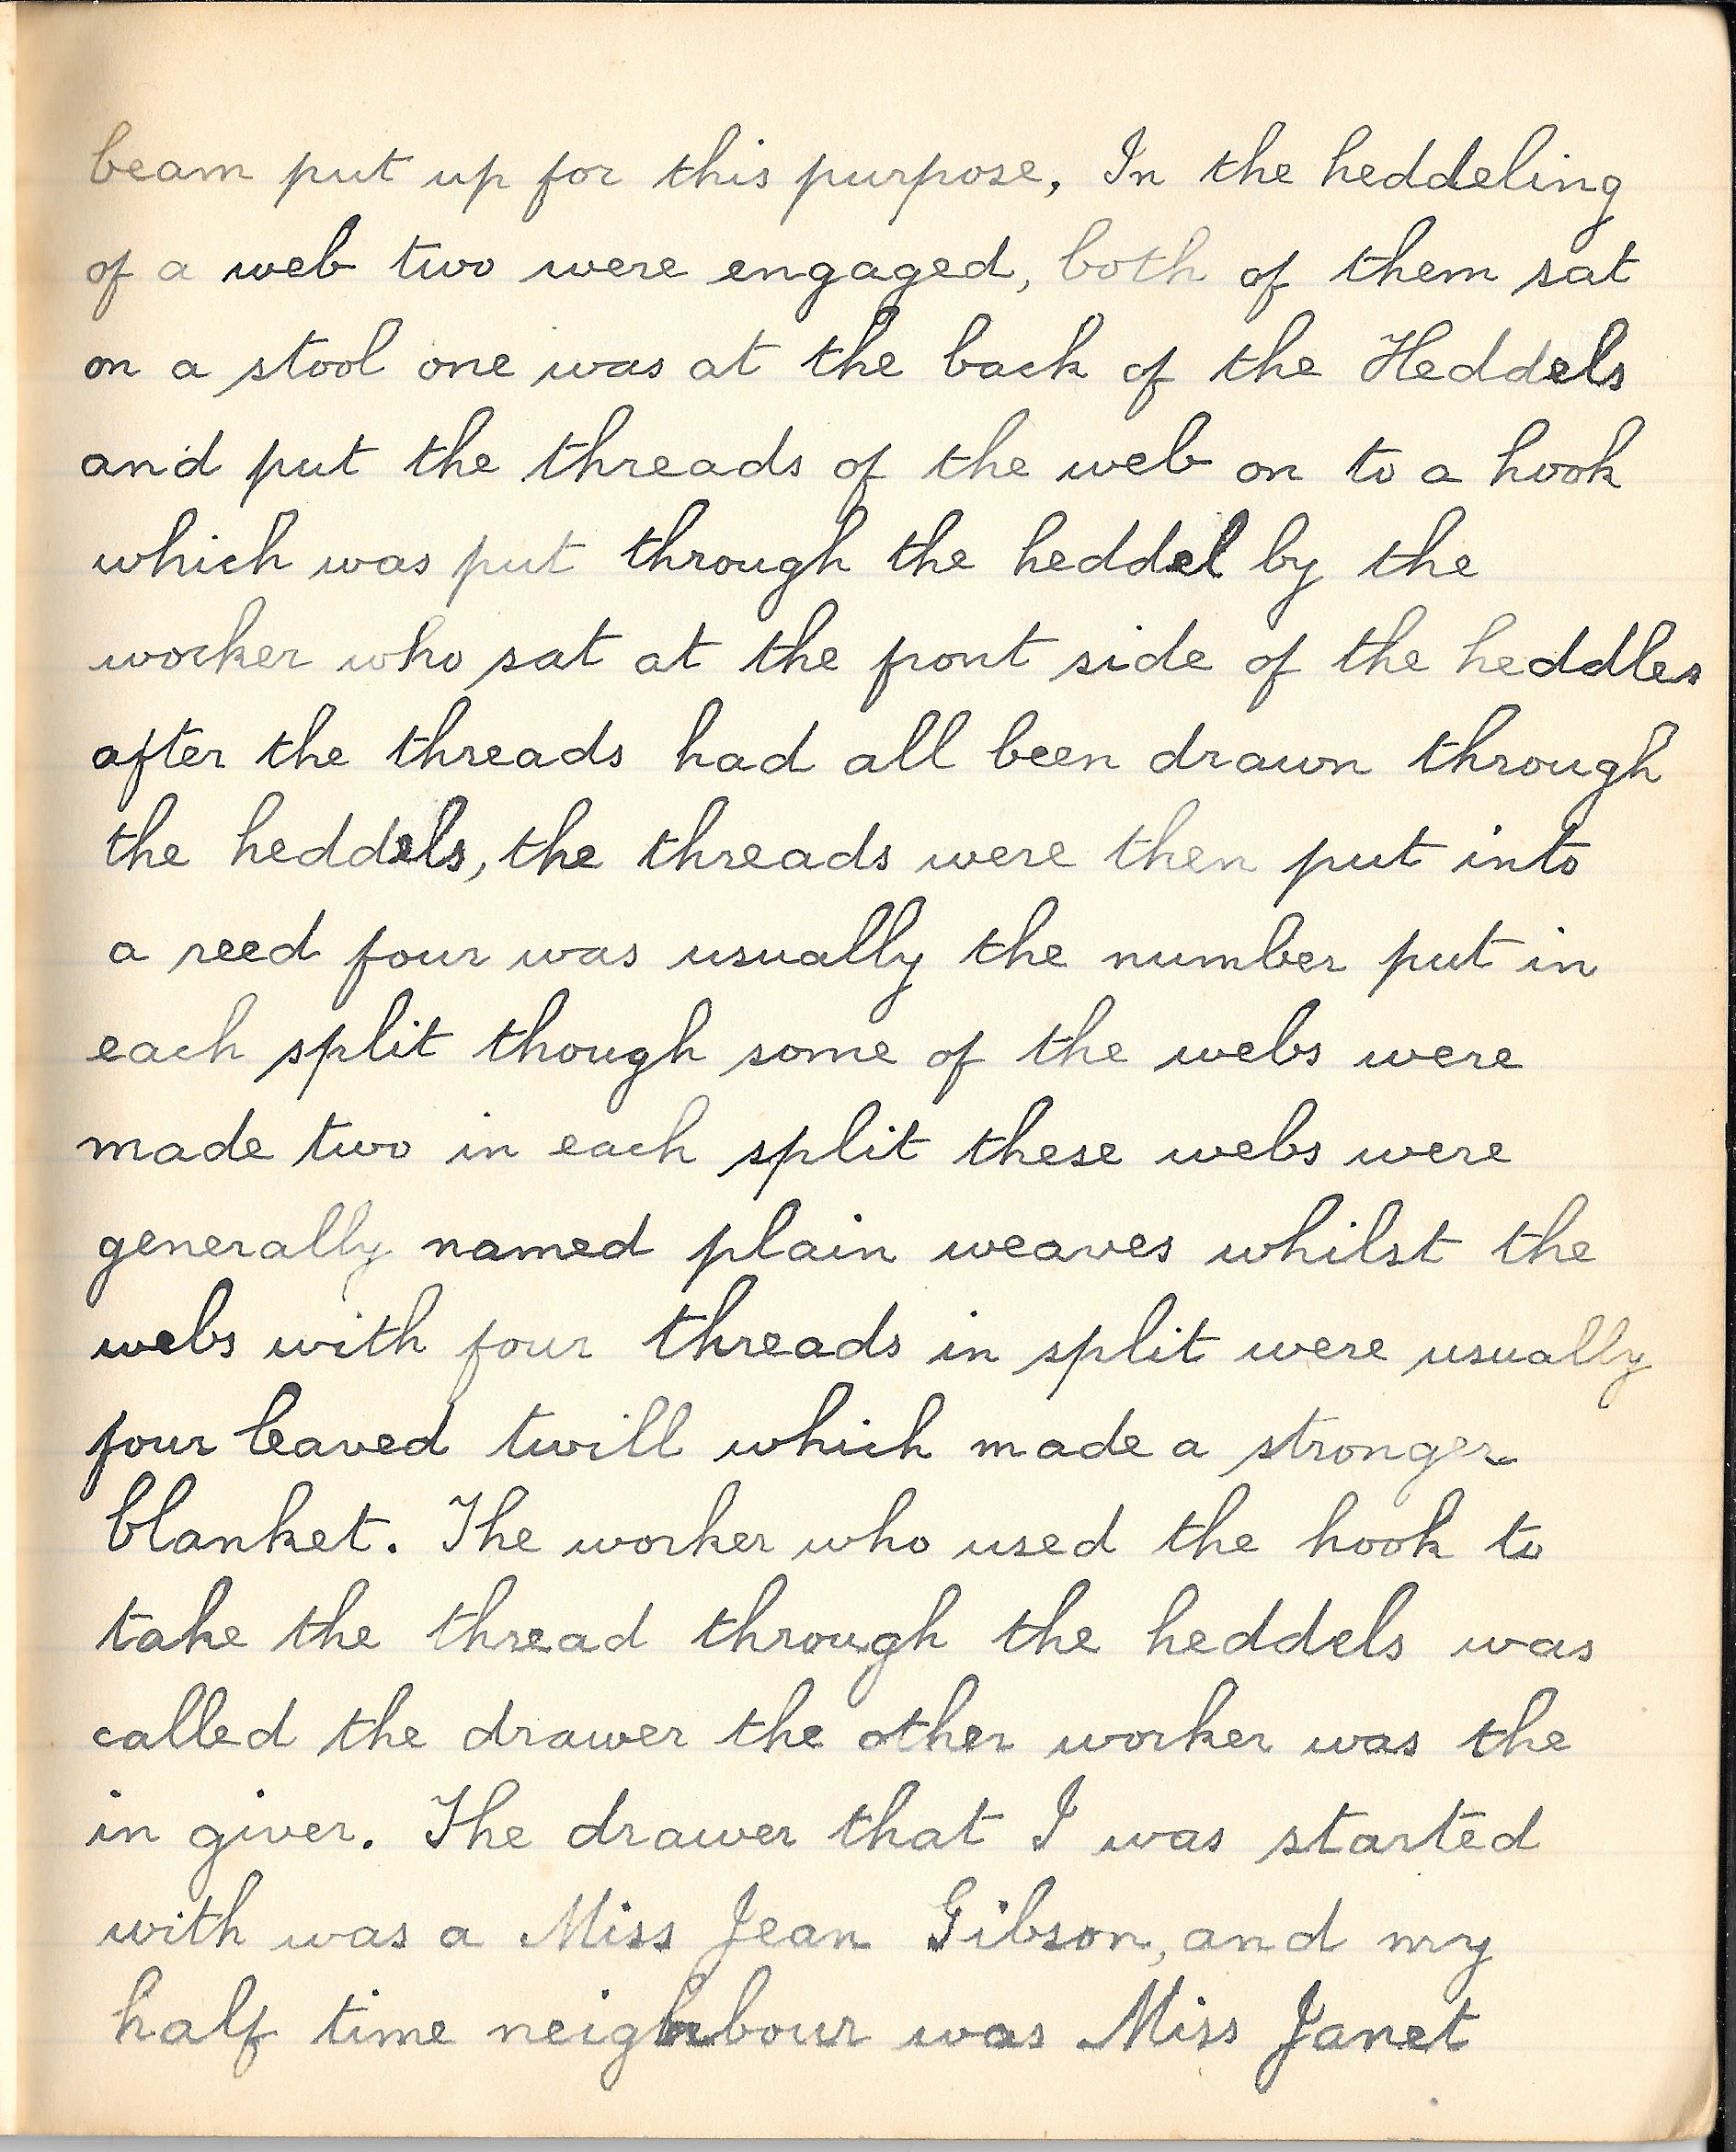 beam put up for this purpose, In the heddeling
of a web two were engaged, both of them sat
on a stool one was at the back of the Heddels
and put the threads of the web on to a hook
which was put through the heddel by the
worker who sat at the front side of the heddles
after the threads had all been drawn through
the heddels, the threads were then put into
a reed four was usually the number put in
each split though some of the webs were
made two in each split these webs were
generally named plain weaves whilst the
webs with four threads in split were usually
four leaved twill which made a stronger
blanket. The worker who used the hook to
take the thread through the heddels was
called the drawer the other worker was the
in giver. The drawer that I was started
with was a Miss Jean Gibson, and my
half time neighbour was Miss Janet